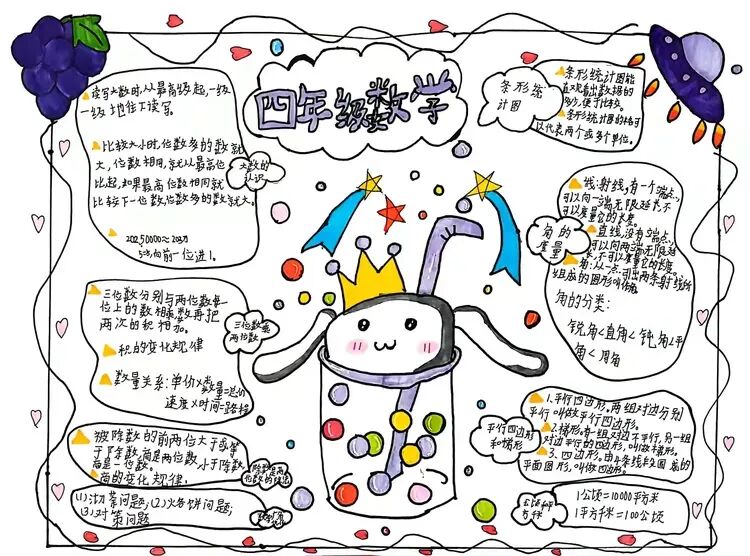 四年级数学
读写大数时,从最高级起,一级
一级地往下读写。
比较大小时,位数多的数就
大,位数相同,就从最高位
比起,如果最高位数相同就
比较下一位数,位数多的数就大。
5
向前一位进1。
大数的
认识
三位数分别与两位数每一
位上的数相乘,再把
两次的积相加。
积的变化规律
数量关系:单价×数量=总价
速度×时间=路程
三位数乘
两位数
被除数的前两位大于或等
于除数,商是两位数,小于除数
商是一位数。
商的变化规律。
除数是两
位数的除法
(1)沏茶问题;(2)烙饼问题;
(3)对策问题
条形统
计图
条形统计图能
直观看出数据的
多少,便于比较。
条形统计图的格可
以代表两个或多个单位。
角的
度量
线:射线,有一个端点,
可以向一端无限延长,不
可以度量它的长度。
直线,没有端点,
可以向两端无限延
长,不可以度量它的长度。
角:从一点引出两条射线所
组成的图形叫做角。
角的分类:
锐角<直角<钝角<平
角<周角
平行四边形
和梯形
1.平行四边形。两组对边分别
平行叫做平行四边形。
2.梯形。有一组对边不平行,另一组
对边平行的四边形,叫做梯形。
3.四边形。由4条线段围成的
平面图形,叫做四边形。
公顷和平
方千米
1公顷=10000平方米
1平方千米=100公顷